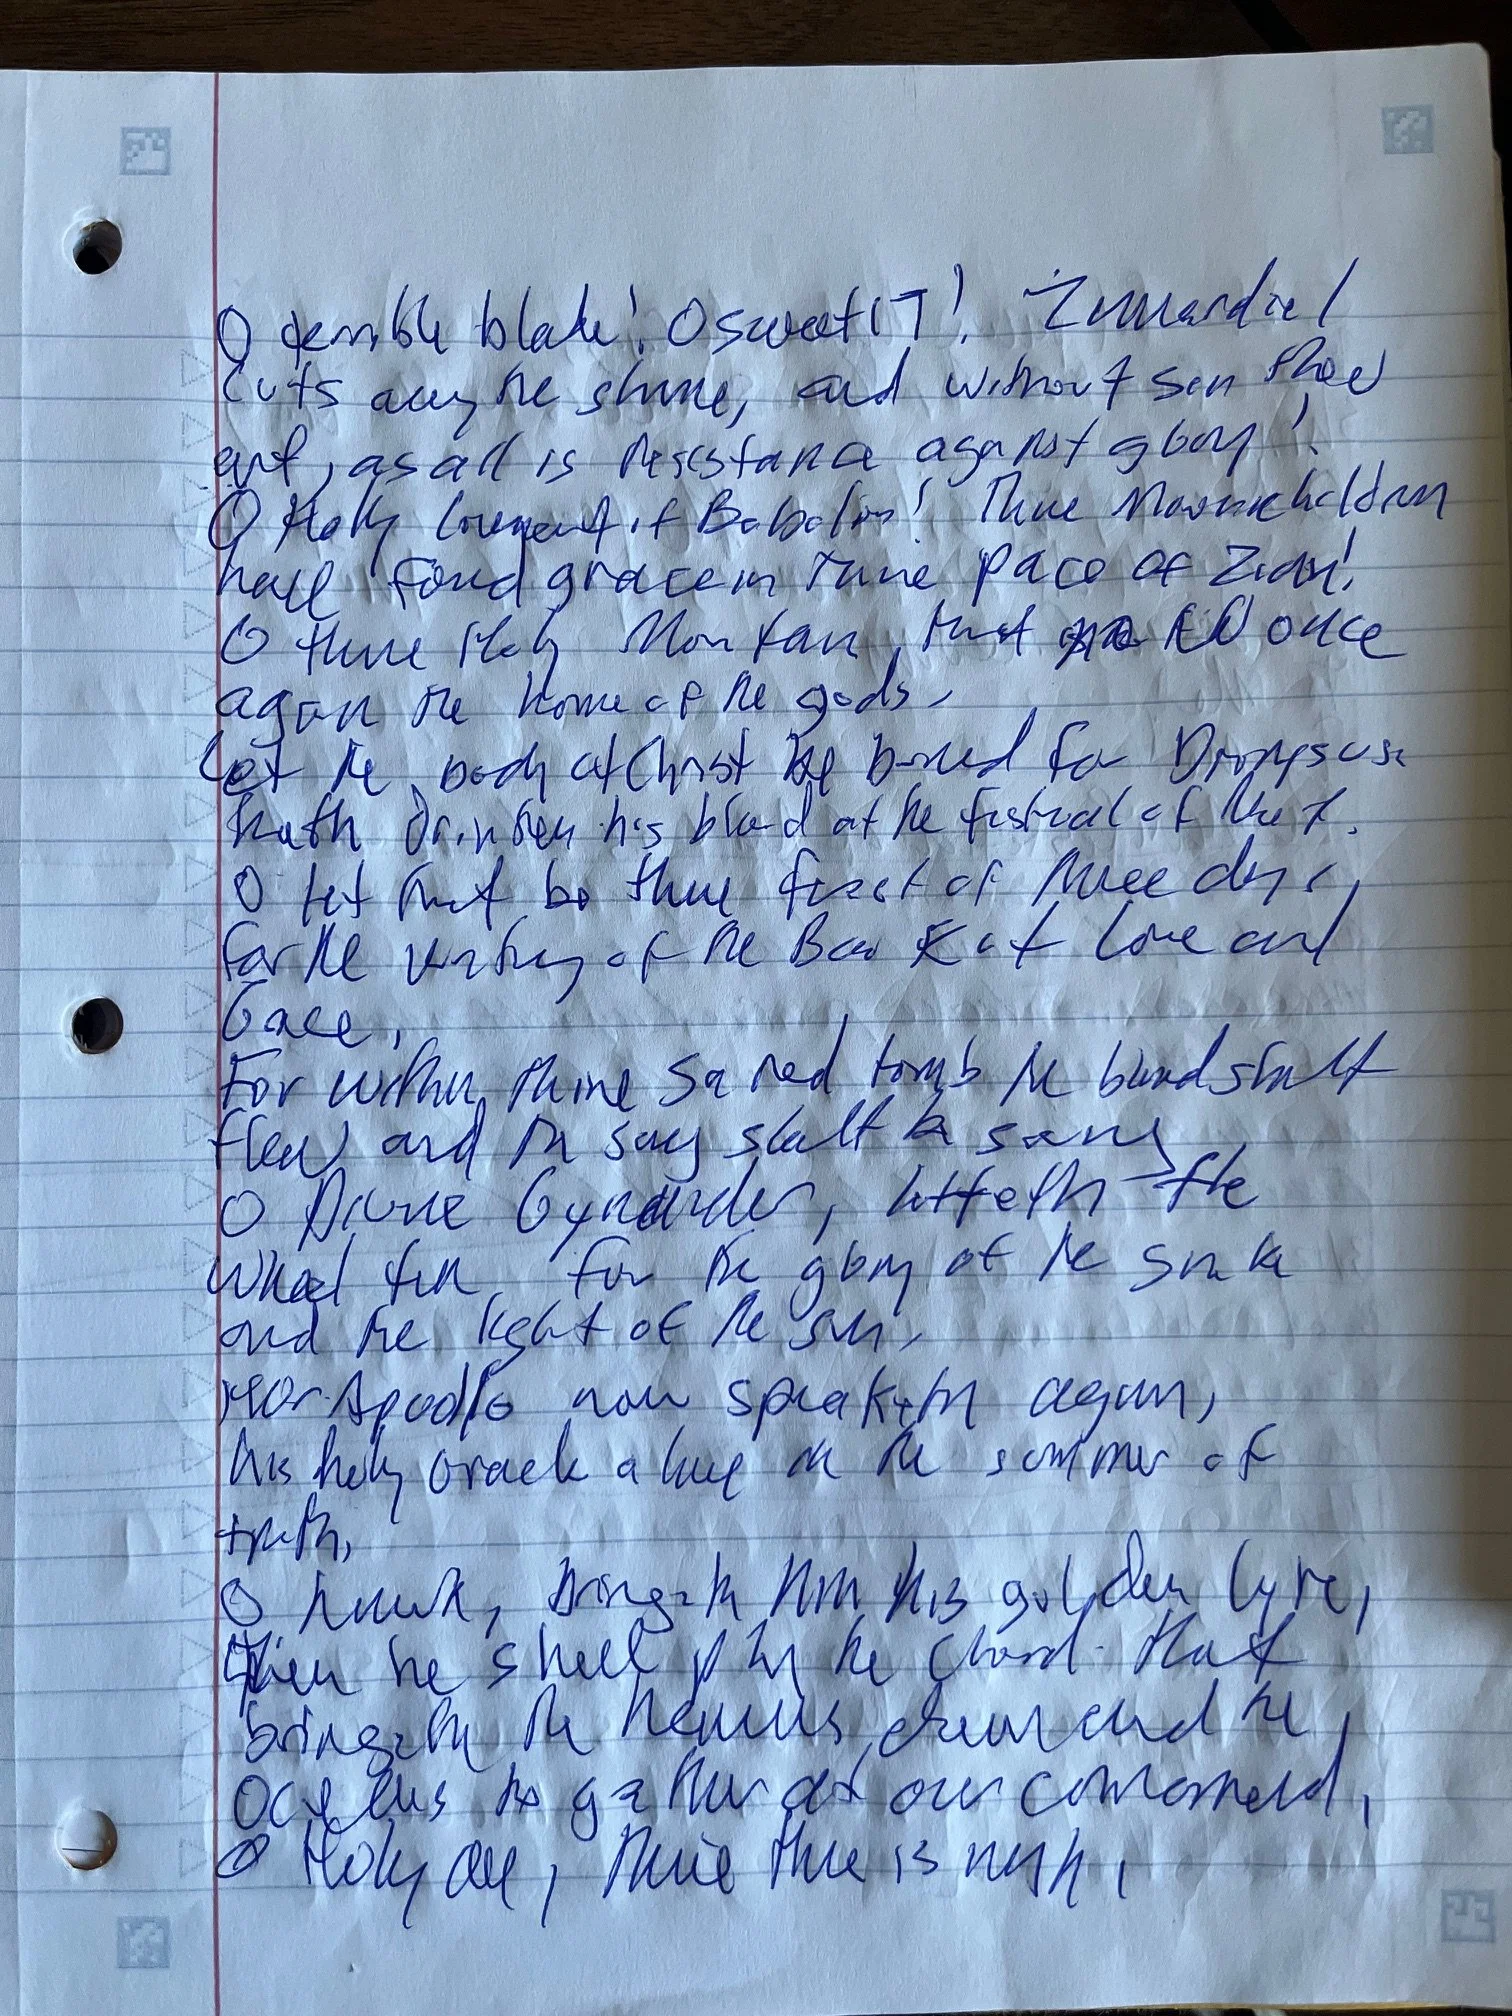 O terrible blade! O sweet IT! Zumardiel
Cuts away the shame, and without sin thou
art, as all is resistance against glory!
O Holy of Babalon! Thine Moonchildren
have found grace in thine pace of Zion!
O thine Holy Montain, that once
again the home of the gods,
Let the body of Christ be buried for Dionysus
hath drinken his blood at the festival of the
O let that be thine feast of three days,
for the writing of the Book of Love and
Grace,
For within thine sacred tomb the blood shalt
flow and the song shalt be sung
O Divine Gynander, the
Wheel turn for the glory of the snake
and the light of the sun,
Hor-Apollo now speaketh again,
his holy oracle alive in the summer of
truth,
O hawk, bringeth him his golden lyre,
then he shall play the chord that
bringeth the heavens down and the
Oceans to gather at our command,
O Holy One, thine time is nigh,